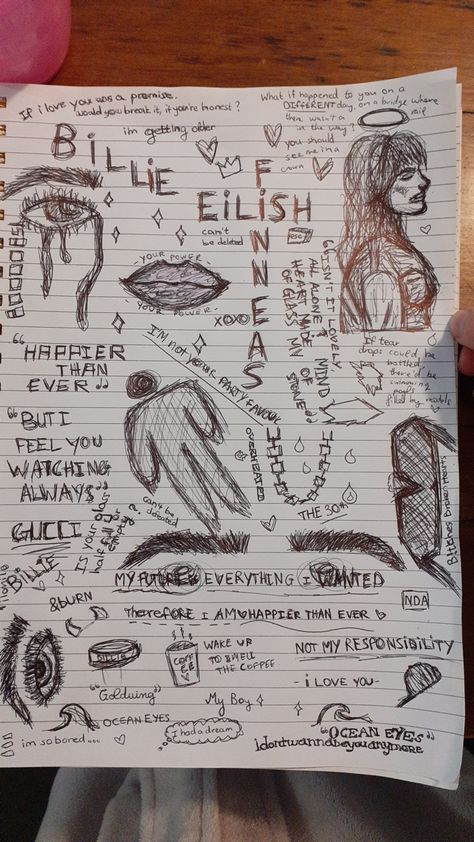 If i love you was a promise.
would you break it, if you're honest?
What if happened to you on a
DIFFERENT day, on a bridge where
there wasn't a rail
in the way?
i'm getting older
you should
see me in a
crown
BILLIE
EILISH
FINNEAS
can't
be deleted
YOUR POWER
YOUR POWER
XOXO
"ISN'T IT LOVELY
ALL ALONE?
HEART MADE
OF GLASS MY
MIND OF
STONE"
I'M NOT YOUR PARTY FAVOUR
If tear
drops could be
bottled
there'd be
swimming
pools
filled by models
"HAPPIER
THAN
EVER"
"BUT I
FEEL YOU
WATCHING
ALWAYS"
OVERHEATED
THE 30th
GUCCI
IS your glass
half full or
empty?
can't be
deleted
Bitches Broken Hearts
BILLIE
MY FUTURE EVERYTHING I WANTED
&BURN
NDA
Therefore I AM HAPPIER THAN EVER
BILLIE
COFFEE
WAKE UP
TO SMELL
THE COFFEE
NOT MY RESPONSIBILITY
-i LOVE YOU-
"Goldwing"
My Boy
OCEAN EYES
I had a dream
"OCEAN EYES"
im so bored...
idontwannabeyouanymore